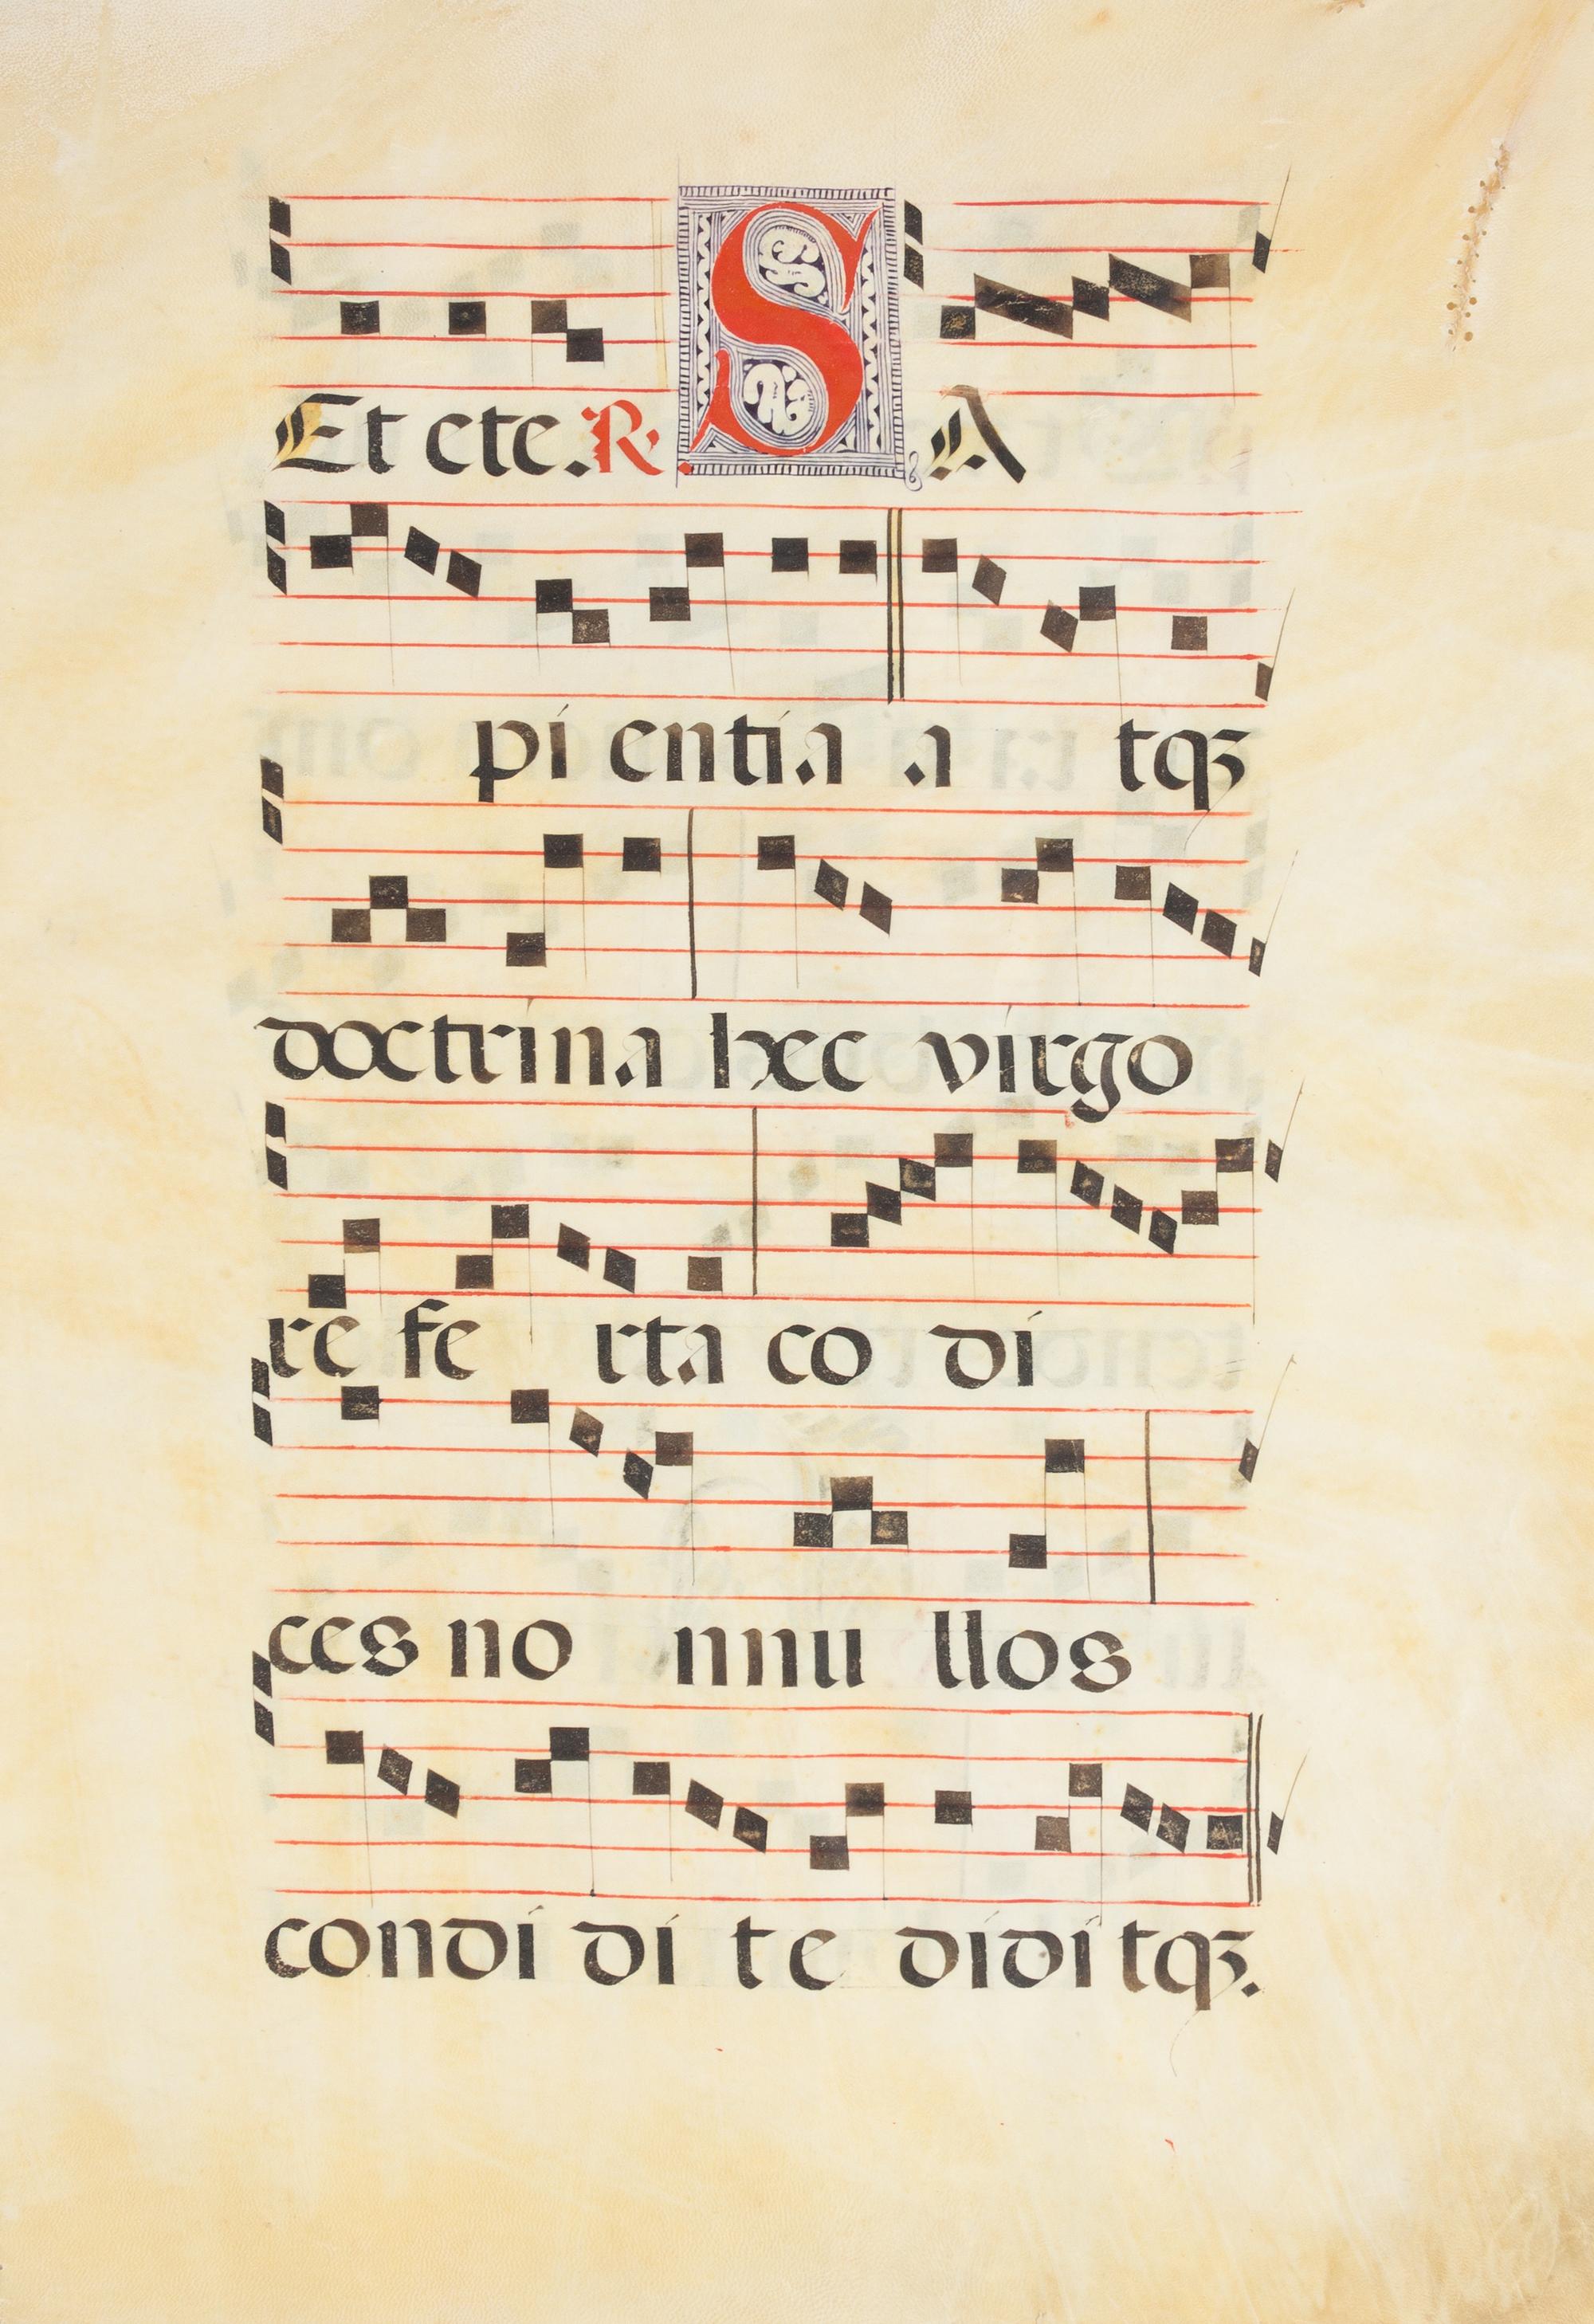 Et ete. R. SA
pi entia a tqꝫ
doctrina hec virgo
re fe rta co di
ces no nnu llos
condi di te didi tqꝫ.